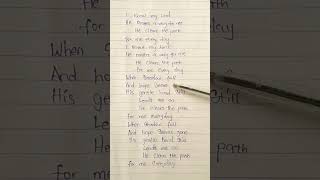 I know my Lord
He makes a way for me
He clears the path
for me every day
I know my Lord
He makes a way for me
He clears the path
for me every day
When shadows fall
And hope seems gone
His gentle hand still
Leads me on
He clears the path
for me everyday
When shadows fall
And hope seems gone
His gentle hand still
Leads me on
He clears the path
for me everyday